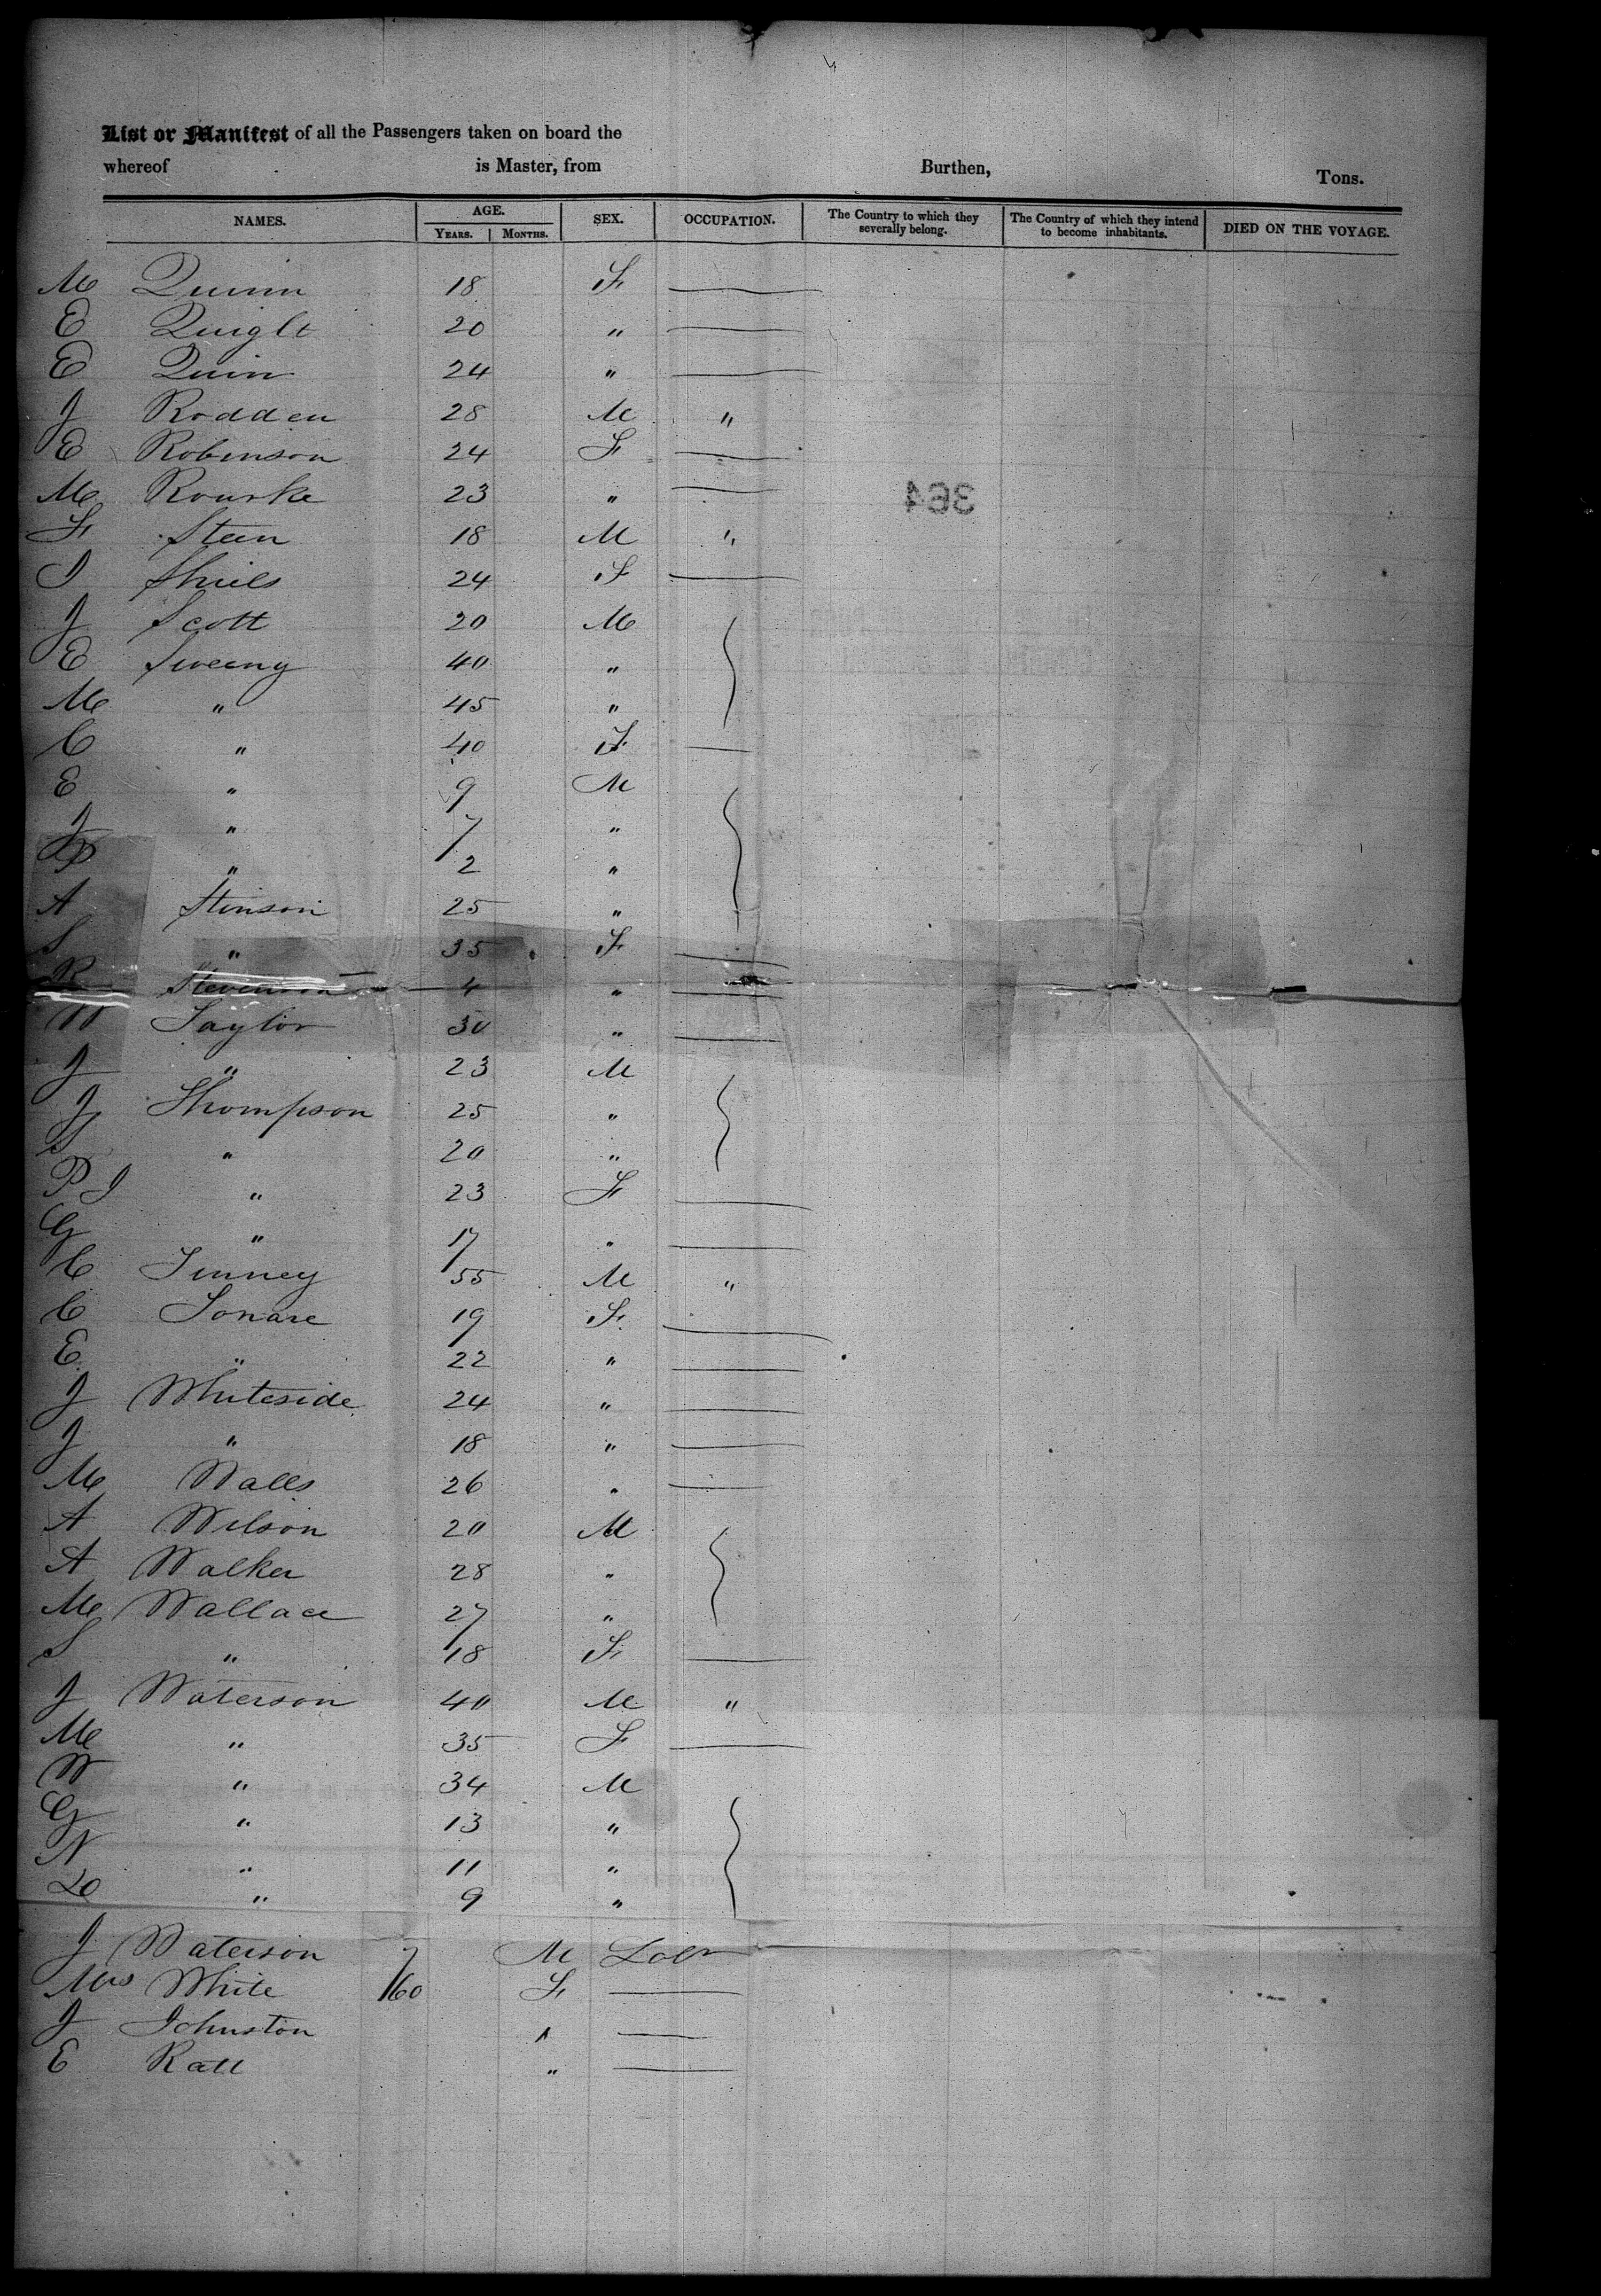 List or Manifest of all the Passengers taken on board the
whereof is Master, from Burthen, Tons.
NAMES. AGE. SEX. OCCUPATION. The Country to which they severally belong. The Country of which they intend to become inhabitants. DIED ON THE VOYAGE.
YEARS. MONTHS.
M Quinn 18 F
E Quiglt 20 "
E Quin 24 "
J Rodden 28 M "
E Robinson 24 F
M Rourke 23 "
F Steen 18 M "
J Shiels 24 F
J Scott 20 M
E Sweeny 40 "
M " 45 "
C " 40 F
E " 9 M
J " 7 "
P " 2 "
A Stinson 25 "
S " 35 F
R Stevenson 4 "
W Taylor 30 "
J " 23 M
J Thompson 25 "
S " 20 "
P J " 23 F
G " 17 "
C Tinney 55 M "
C Tonare 19 F
E " 22 "
J Whiteside 24 "
J " 18 "
M Walls 26 "
A Wilson 20 M
A Walker 28 "
M Wallace 27 "
S " 18 F
J Waterson 40 M "
M " 35 F
W " 34 M
G " 13 "
N " 11 "
D " 9 "
J Waterson 7 M Labr
Mrs White 60 F
J Johnston "
E Rall "
364